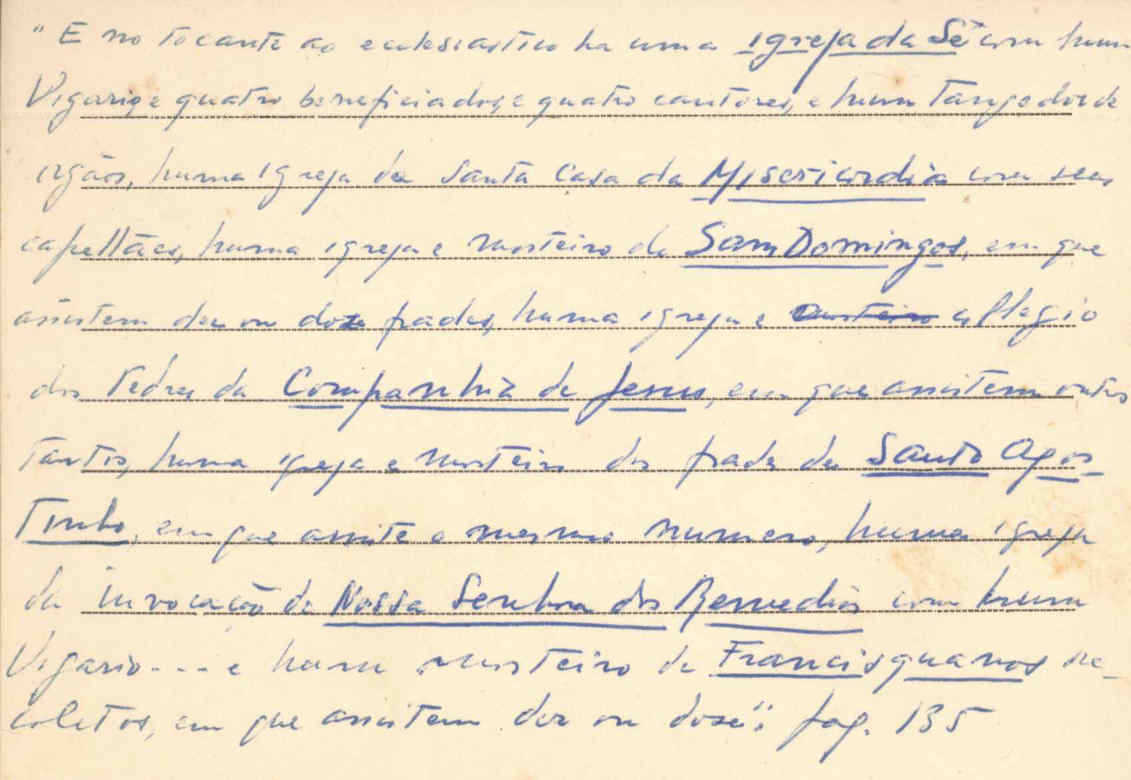 "E no tocante ao ecclesiastico ha uma igreja da Sé com hum
Vigario, e quatro beneficiados, e quatro cantores, e hum Tangedor de
orgãos, huma igreja da Santa Casa da Misericordia com seus
capellães, huma igreja e mosteiro de Sam Domingos, em que
assistem dez ou doze frades, huma igreja e mosteiro collegio
dos Padres da Companhia de Jesus, em que assistem outros
tantos, huma igreja e mosteiro dos frades de Santo Agos-
tinho, em que assiste o mesmo numero, huma igreja
da invocação de Nossa Senhora dos Remedios com hum
Vigario --- e hum mosteiro de Francisquanos re-
coletos, em que assistem dez ou doze". pag. 135